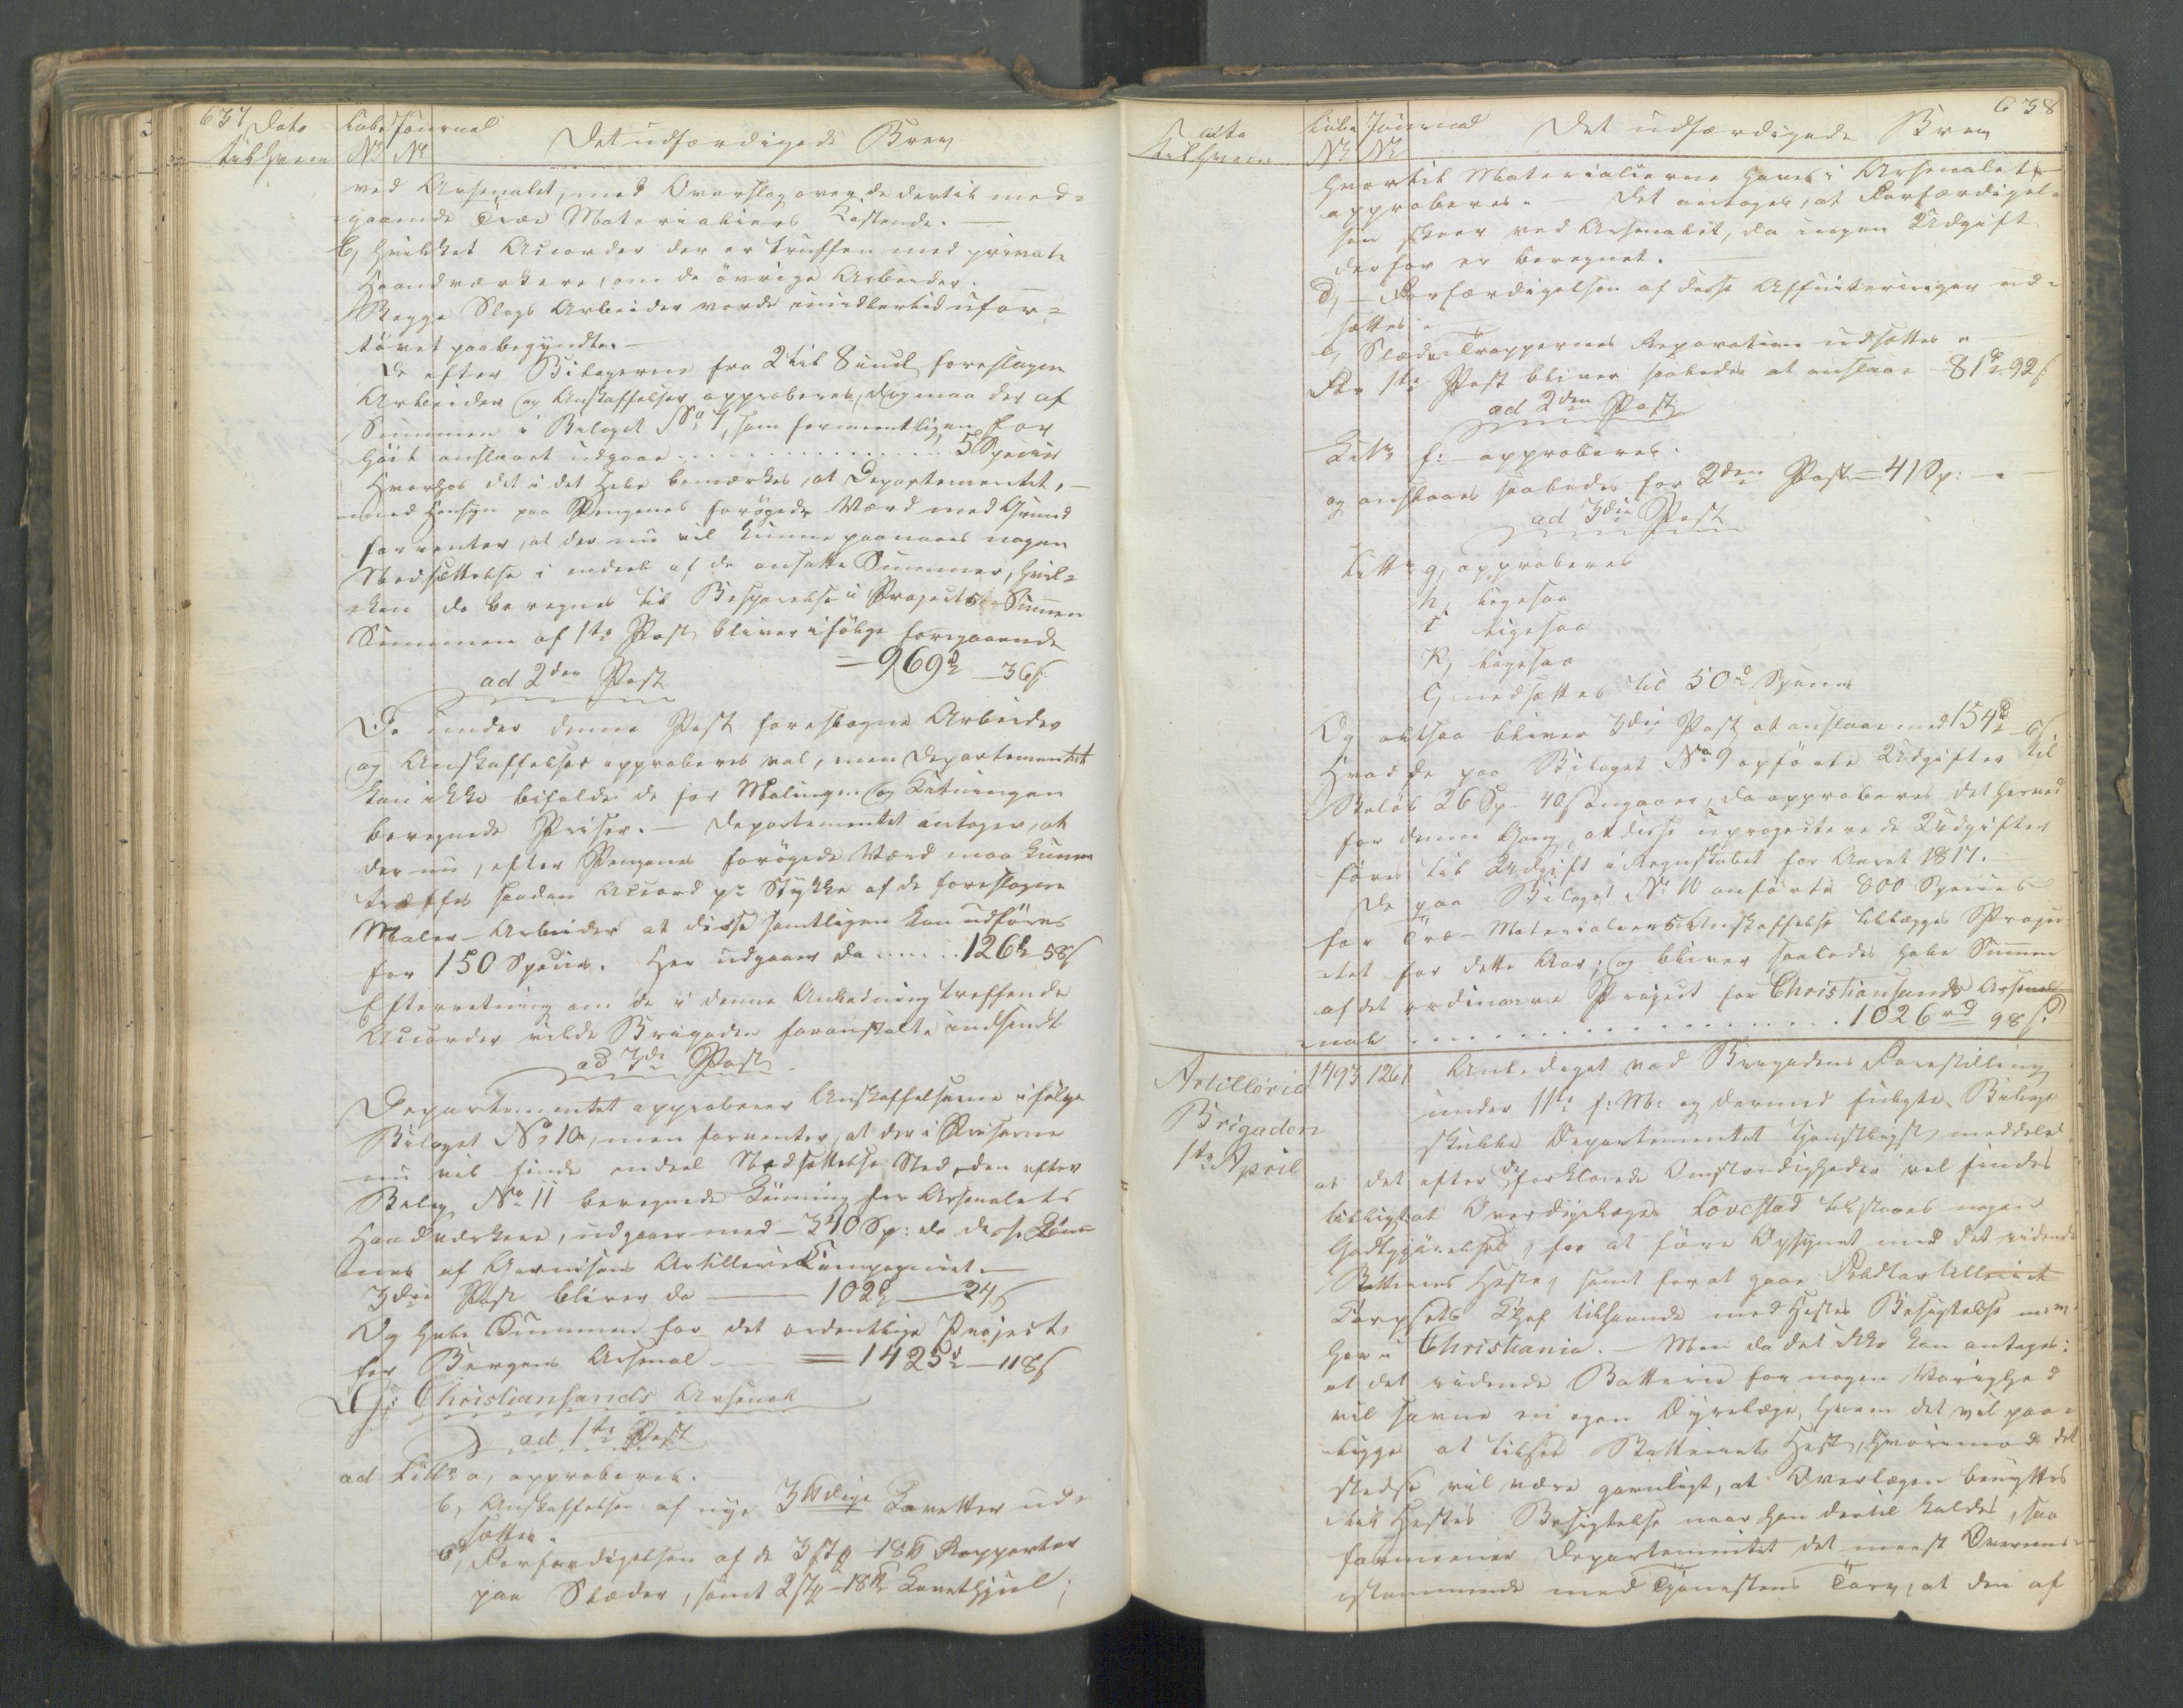 637 Dato Løbe Journal Det udfærdigede Brev
til hvem No No
ved Arsenalet, med Overslag over de dertil med=
gaaende Træ Materialiers Kostende. —
b, hvilket Accorder der er truffen med private
Haandværkere, om de øvrige Arbeider. —
Begge Slags Arbeider vorde imidlertid ufor=
tøvet paabegyndte. —
De efter Bilagerne fra 2 til 8 incl. foreslagne
Arbeider og Anskaffelser approberes, dog maa der af
Summen i Bilaget No 7, som formeentligen for
høit anslaaet udgaae . . . . . . . . . . 5 Species
Hvorhos det i det Hele bemærkes, at Departementet, —
med Hensyn paa Pengenes forøgede Værd med Grund
forventer, at der nu vil kunne paanaaes nogen
Nedsættelse i endeel af de ansatte Summer, hvil=
=ken da beregnes til Besparelse i Projects Summen
Summen af 1ste Post bliver ifølge foregaaende
— 969 — 36ß
ad 2den Post
De under denne Post foreslagne Arbeider
og Anskaffelser approberes vel, men Departementet
kan ikke bifalde de for Malingen og Kitningen
beregnede Priser. — Departementet antager, at
der nu, efter Pengenes forøgede Værd maa kunne
træffes saadan Accord pr Stykke af de foreslagne
Maler-Arbeider at disse samtligen kan udføres
for 150 Species. Her udgaaer da . . . . . 126 58ß
Efterretning om de i denne Anledning træffende
Accorder vilde Brigaden foranstalte indsendt
ad 3die Post
Departementet approberer Anskaffelserne ifølge
Bilaget No 10, men forventer, at der i Priserne
nu vil finde endeel Nedsættelse Sted, den efter
Bilag No 11 beregnede Lønning for Arsenalets
Haandværkere, udgaaer med — 340 Sp: da disse Løn=
nes af Garnisons Artillerie Compagniet. —
3die Post bliver da — 102 — 24ß
Og hele Summen for det ordentlige Project
for Bergens Arsenal — = 1425 — 118ß
Christiansands Arsenal
ad 1ste Post
ad Littr a, approberes.
b, Anskaffelsen af nye 3 Lavetter ud=
sættes.
c, Forfærdigelsen af de 3 St 18 Rapperter
paa Slæder, samt 2 St 18 Lavethjul;
638
Dato Løbe Journal Det udfærdigede Brev
til hvem No No
hvortil Materialierne haves i Arsenalet
approberes. — Det antages, at Forfærdigel=
sen skeer ved Arsenalet, da ingen Udgift
derfor er beregnet. —
d, — Forfærdigelsen af disse Affuiteringer ud=
sættes. —
e, Slæde Trappernes Reparation udsættes. —
For 1ste Post bliver saaledes at anslaae 81 92ß
ad 2den Post
Littr f: approberes.
og anslaaes saaledes for 2den Post — 41 Sp: —
ad 3die Post
Littr g, approberes
h, ligesaa
i ligesaa
k, ligesaa
l, nedsættes til 50 Species
Og altsaa bliver 3die Post at anslaae med 154 6ß
Hvad de paa Bilaget No 9 opførte Udgifter til
Beløb 26 Sp — 40ß angaaer, da approberes det herved
for denne Gang, at disse uprojecterede Udgifter
føres til Udgift i Regnskabet for Aaret 1817. —
De paa Bilaget No 10 anførte 800 Species
for Træ-Materialiers Anskaffelse tillægges Projec
tet for dette Aar; og bliver saaledes hele Summen
af det ordinaire Project for Christiansands Arse
nal . . . . . . . . . . . . . . . 1026 98ß
Artillerie 1493 1261 Anlediget ved Brigadens Forestilling
Brigaden under 11te f: M: og dermed fulgte Bilage
1ste April skulde Departementet tjenstligst meddele,
at det efter de forklarede Omstændigheder vel findes
billigt at Overdyrlæge Lovestad tilstaaes nogen
Godtgjørelse, for at føre Opsynet med det ridende
Batteries Heste, samt for at gaae Feldtartilleriet
Corpsets Chef tilhaande med Hestes Besigtelse m: m:
her i Christiania. — Men da det ikke kan antages
at det ridende Batterie for nogen Varighed
vil savne en egen Dyrelæge, hvem det vil paa=
ligge at tilsee Batteriets Heste, hvorimod det
stedse vil være gavnligt, at Overlægen benyttes
til Hestes Besigtelse naar han dertil kaldes, saa
formener Departementet det meest Overeens=
stemmende med Tjenestens Tarv, at den af